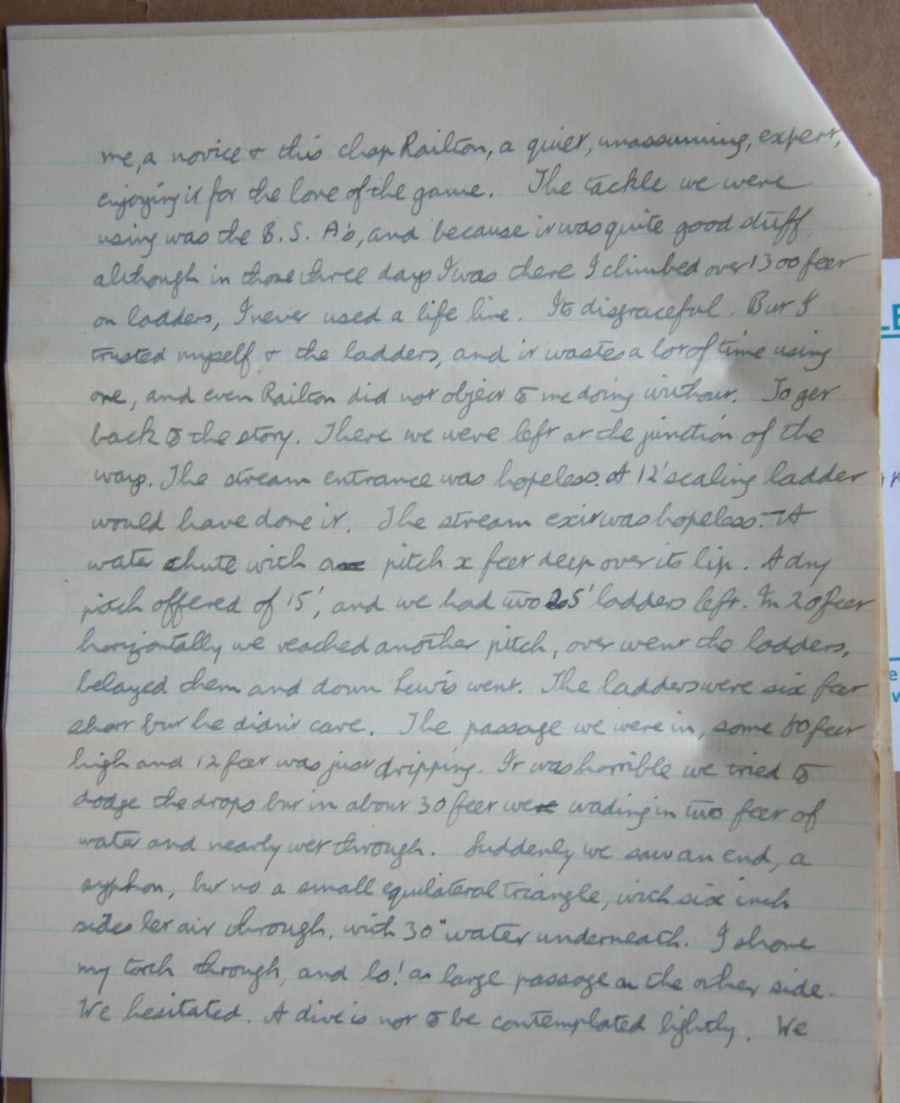 me, a novice & this chap Railton, a quiet, unassuming, expert,
enjoying it for the love of the game. The tackle we were
using was the B.S. A's, and because it was quite good stuff
although in those three days I was there I climbed over 1300 feet
on ladders, I never used a life line. Its disgraceful. But I
trusted myself & the ladders, and it wastes a lot of time using
one, and even Railton did not object to me doing without. To get
back to the story. There we were left at the junction of the
ways. The stream entrance was hopeless. A 12' scaling ladder
would have done it. The stream exit was hopeless. - A
water chute with a pitch x feet deep over its lip. A dry
pitch offered of 15', and we had two 25' ladders left. In 20 feet
horizontally we reached another pitch, over went the ladders,
belayed them and down Lewis went. The ladders were six feet
short but he didn't care. The passage we were in, some 80 feet
high and 12 feet was just dripping. It was horrible we tried to
dodge the drops but in about 30 feet were wading in two feet of
water and nearly wet through. Suddenly we saw an end, a
syphon, but no a small equilateral triangle, with six inch
sides let air through, with 30" water underneath. I shone
my torch through, and lo! a large passage on the other side.
We hesitated. A dive is not to be contemplated lightly. We